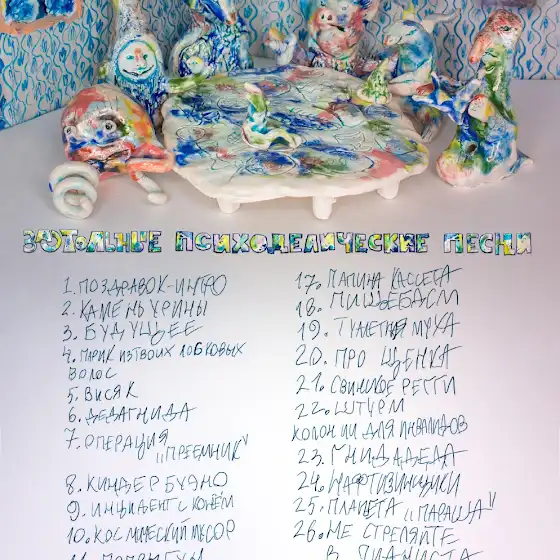 ЗАСТОЛЬНЫЕ ПСИХОДЕЛИЧЕСКИЕ ПЕСНИ
1. ПОЗДРАВОК-ИНТРО
2. КАМЕНЬ УРИНЫ
3. БУДУЩЕЕ
4. ПАРИК ИЗ ТВОИХ ЛОБКОВЫХ
ВОЛОС
5. ВИСЯК
6. ДЕДАГНИДА
7. ОПЕРАЦИЯ
„ПРЕЕМНИК"
8. КИНДЕР БУЭНО
9. ИНЦИДЕНТ С КОНЁМ
10. КОСМИЧЕСКИЙ МУСОР
17. ПАПИНА КАССЕТА
18. ПИЩЕБАСМ
19. ТУАЛЕТНАЯ МУХА
20. ПРО ЩЕНКА
21. СВИНСКОЕ РЕГГИ
22. ШТУРМ
КОЛОНИИ ДЛЯ ИНВАЛИДОВ
23. ГНИДАДЕДА
24. НАФТИЗИНЩИКИ
25. ПЛАНЕТА „ПАРАША"
26. НЕ СТРЕЛЯЙТЕ
В ПИАНИСТА